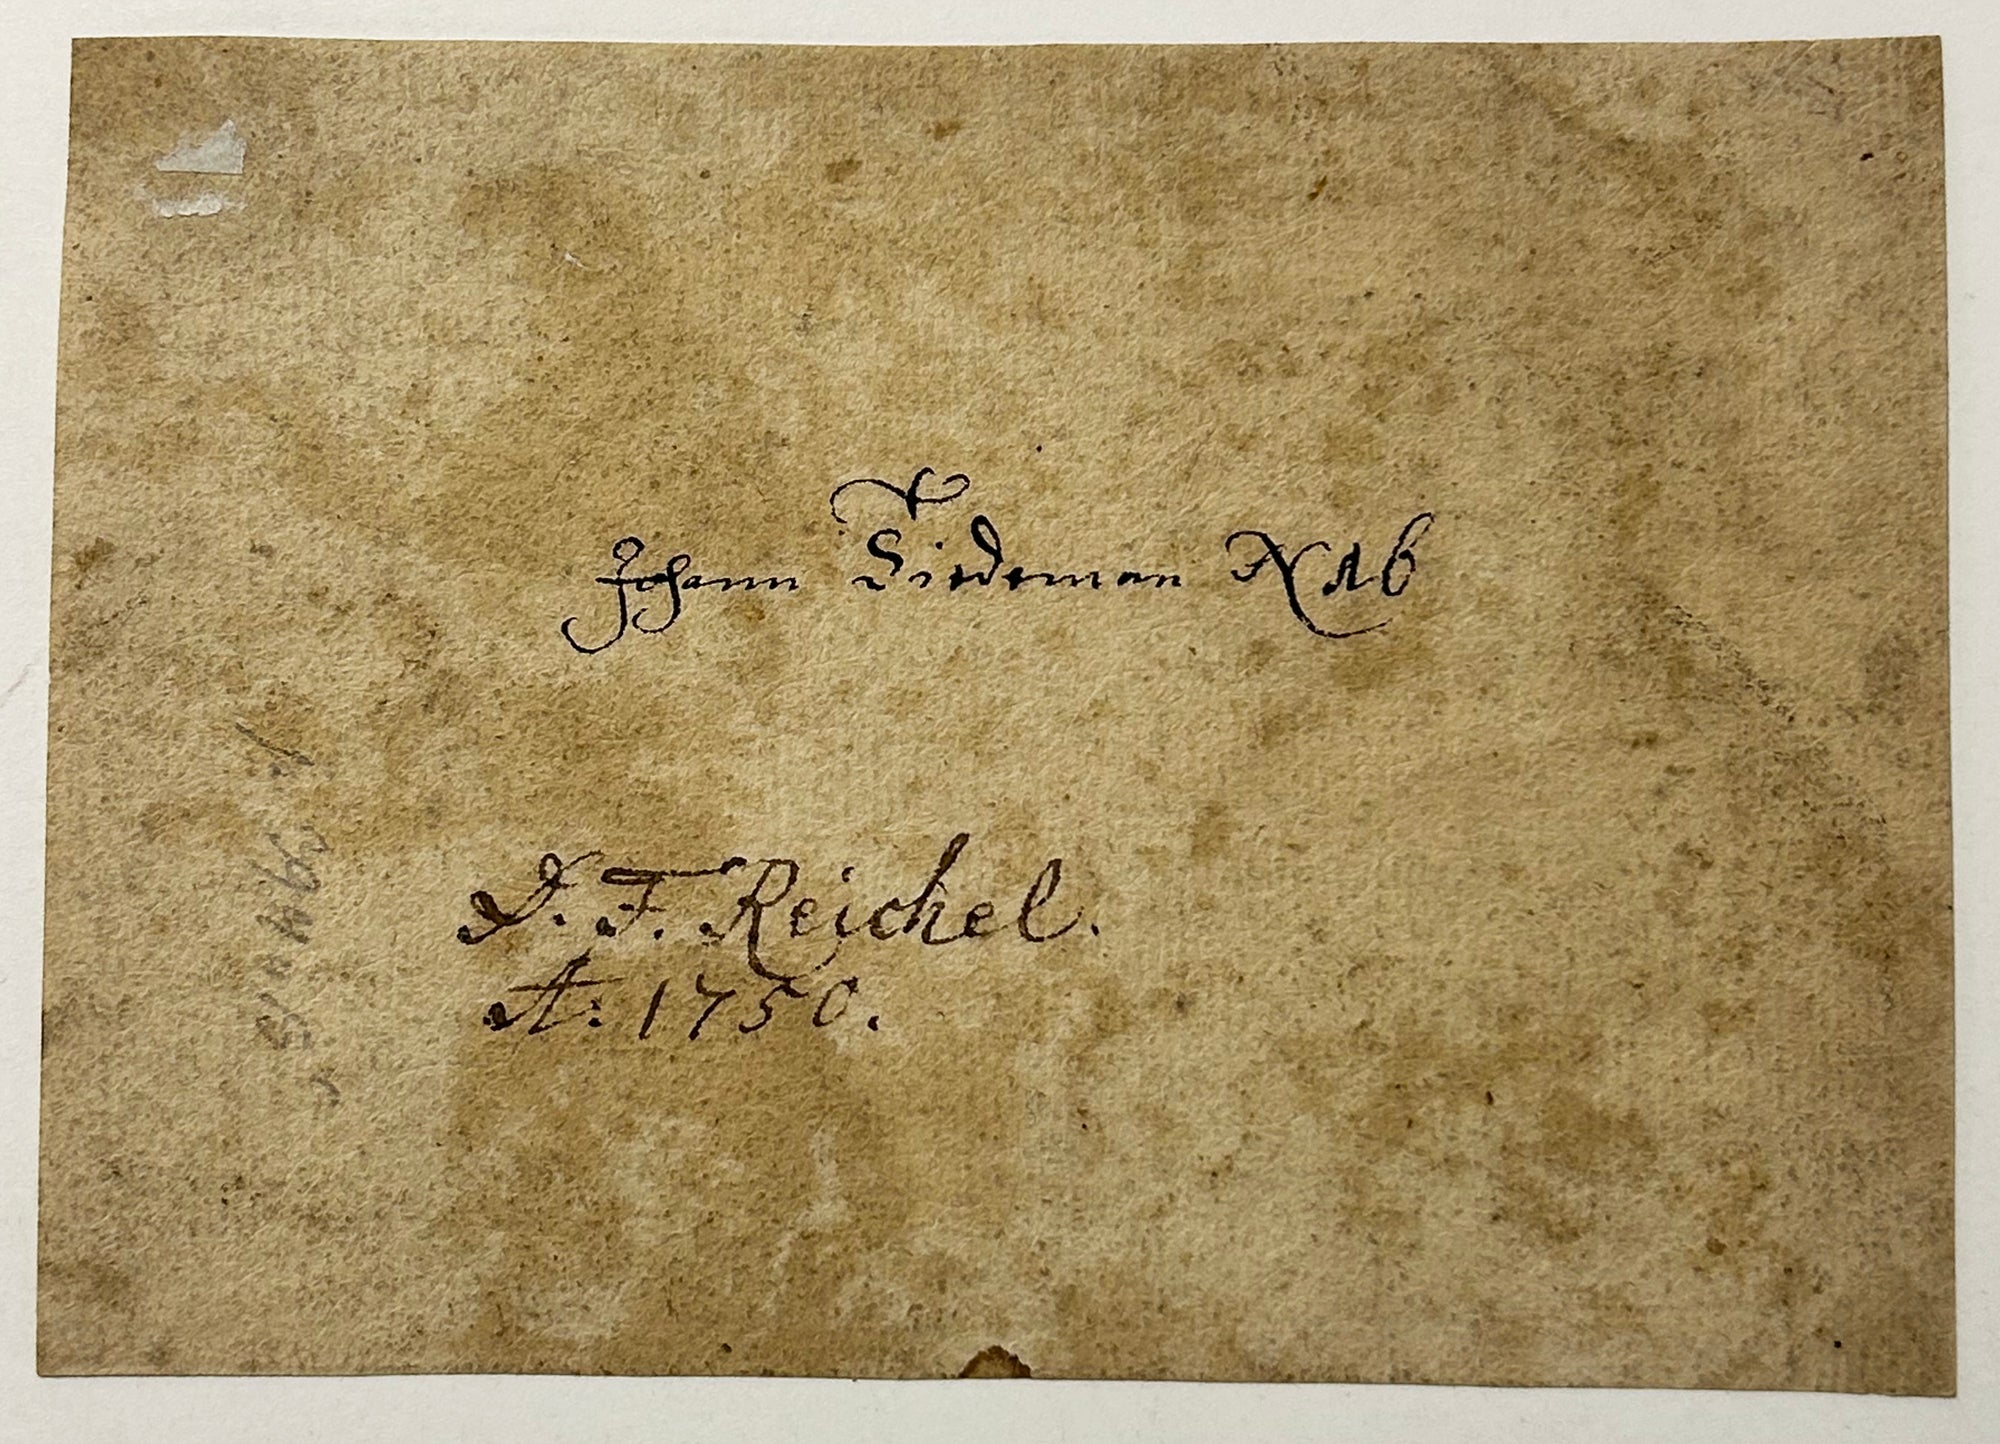 Johann Tiedeman N 16
D. F. Reichel.
A: 1750.